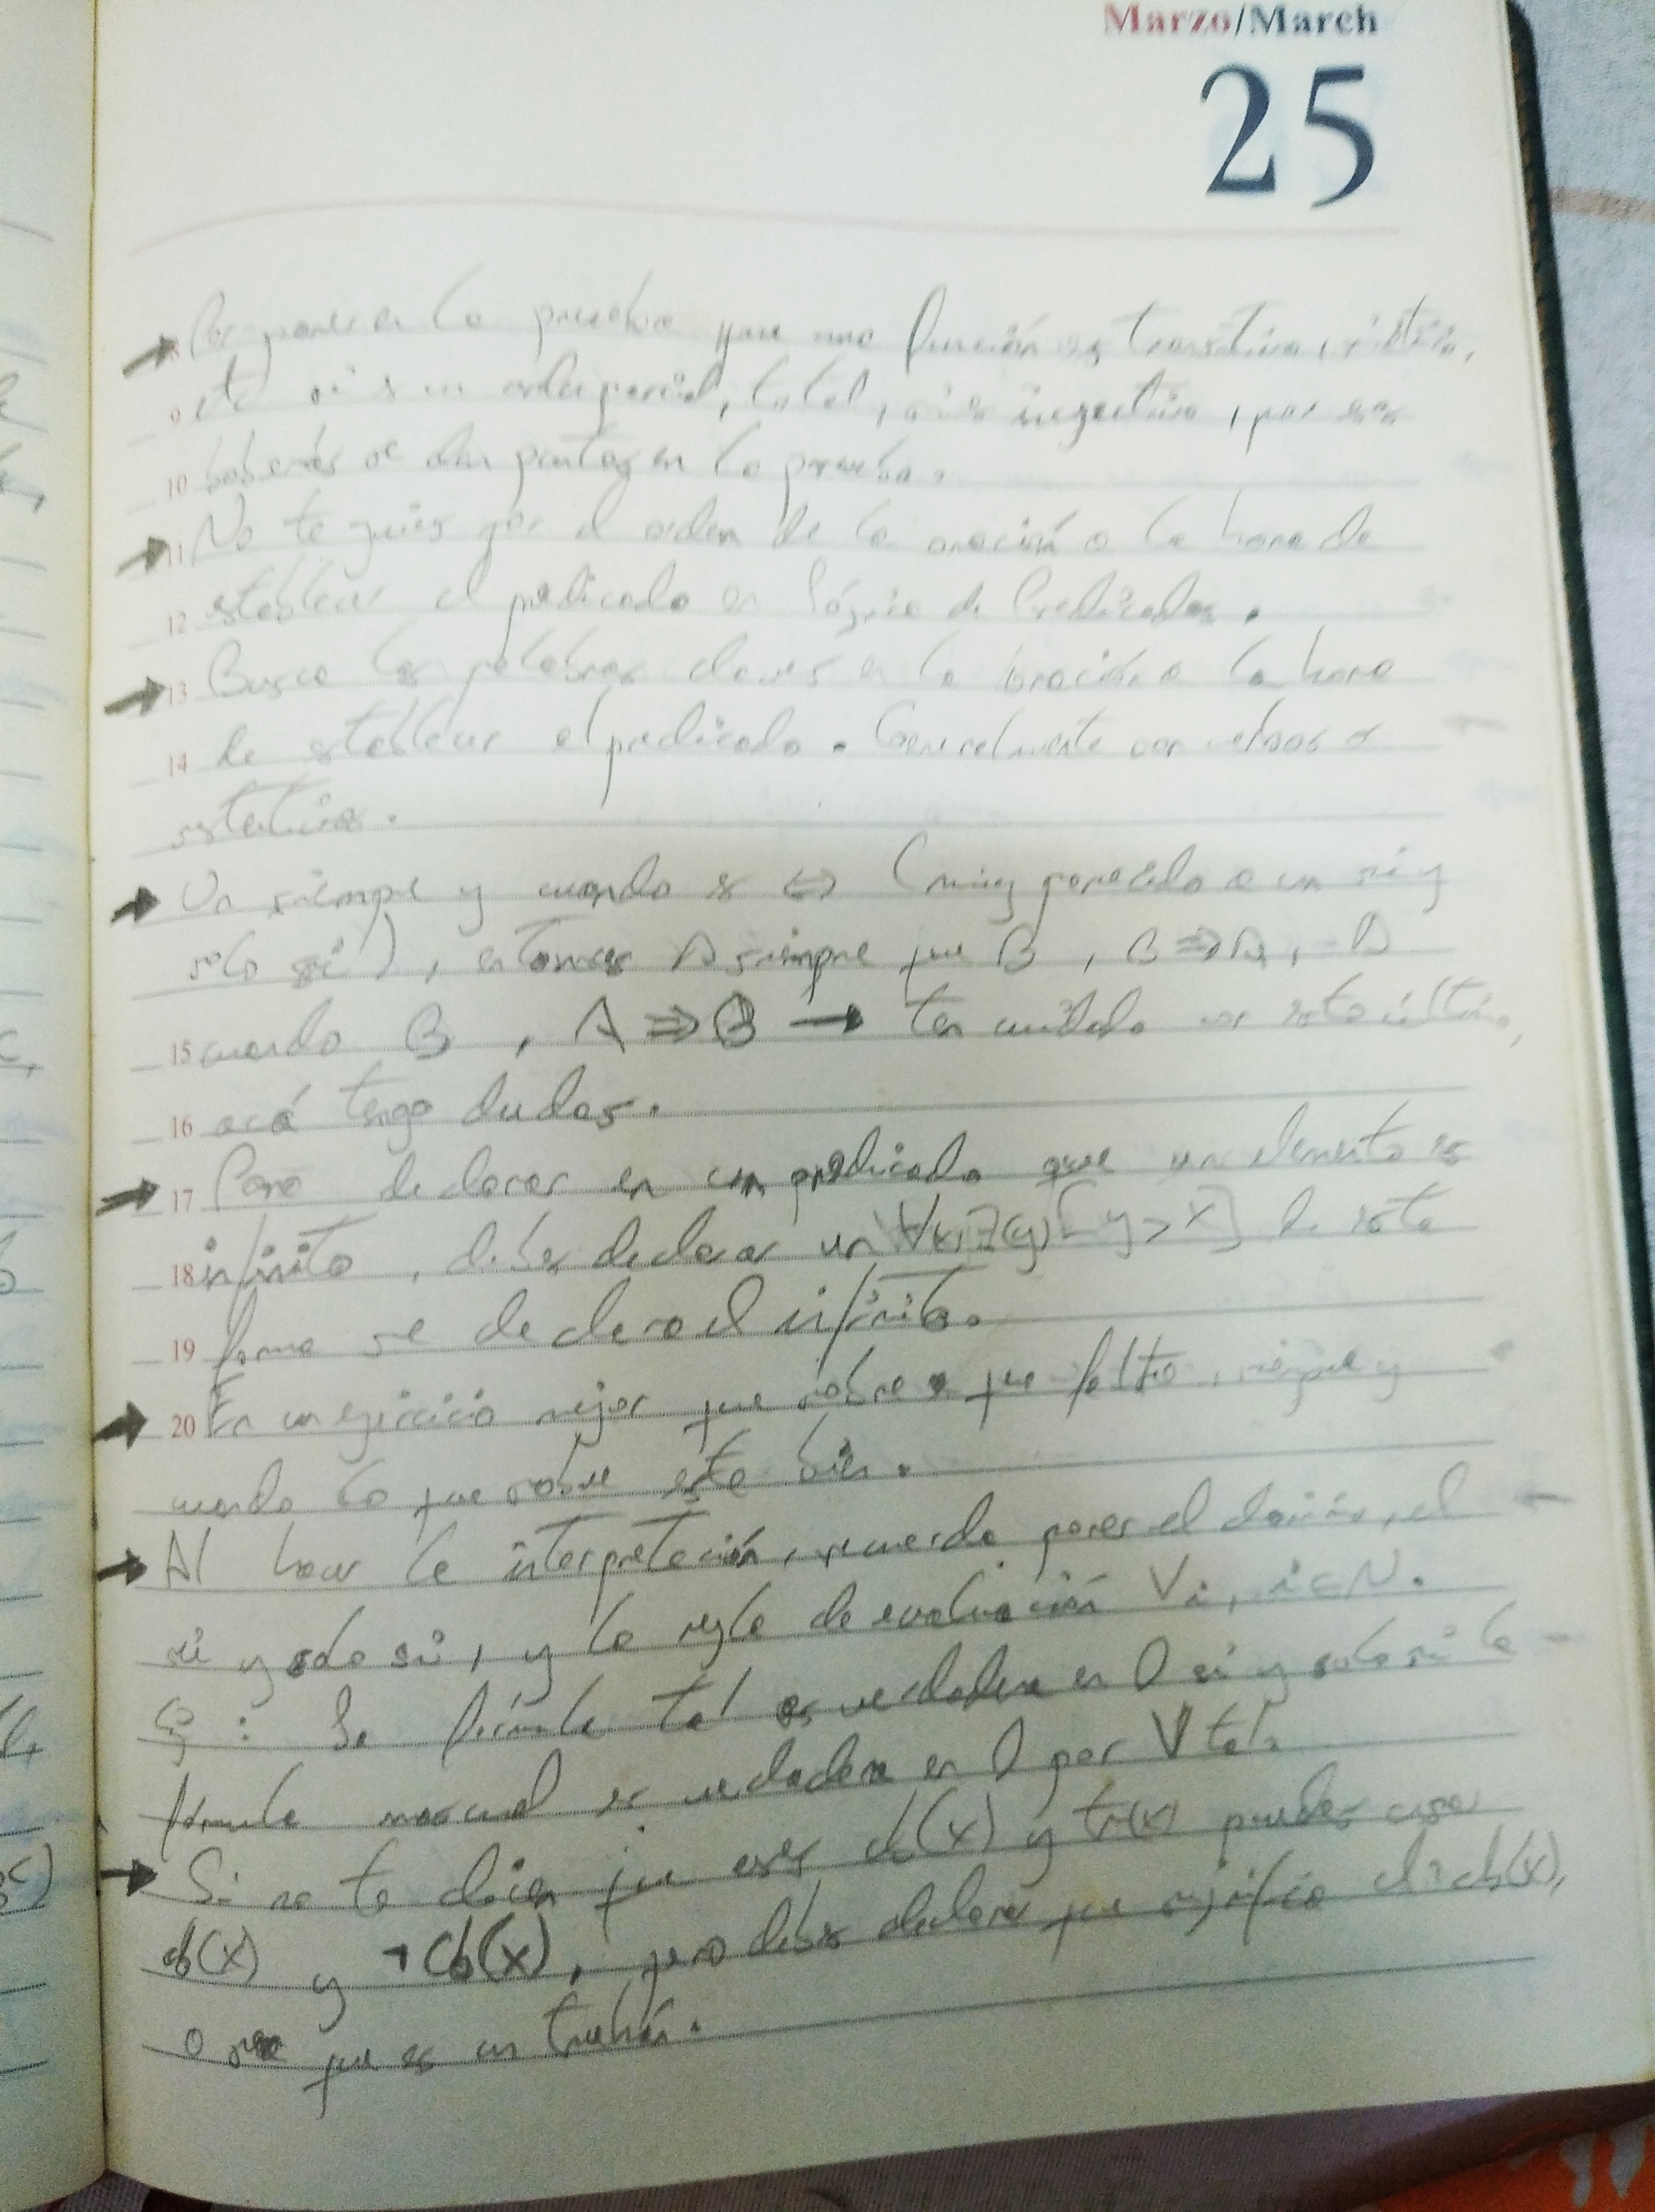 Marzo/March
25
Por poner en la prueba que una función es transitiva,
9 etc si es un orden parcial, total, si es inyectiva, por esas
10 boberías se dan puntos en la prueba.
11 No te guíes por el orden de la oración a la hora de
12 establecer el predicado en Lógica de Predicados.
13 Busca las palabras claves en la oración a la hora
14 de establecer el predicado. Generalmente son verbos o
Un siempre y cuando es ⇔ (muy parecido a un si y
solo si), entonces A siempre que B, B ⇒ A, A
15 cuando B, A ⇒ B → ten cuidado con esto último,
16 acá tengo dudas.
17 Para declarar en un predicado que un elemento es
18 infinito, debes declarar un ∀(x)∃(y)[y > x] de esta
19 forma se declara el infinito.
20 En un ejercicio mejor que sobre a que falte, siempre y
cuando lo que sobre este bien.
Al hacer la interpretación, recuerda poner el dominio, el
si y solo si, y la regla de evaluación Vi, i ∈ N.
: La fórmula tal es verdadera en D si y solo si la
fórmula es verdadera en D por V tal.
Si no te dicen que uses cb(x) y tr(x) puedes usar
cb(x) y ¬cb(x), pero debes declarar que significa el ¬cb(x),
o sea que es un truhán.